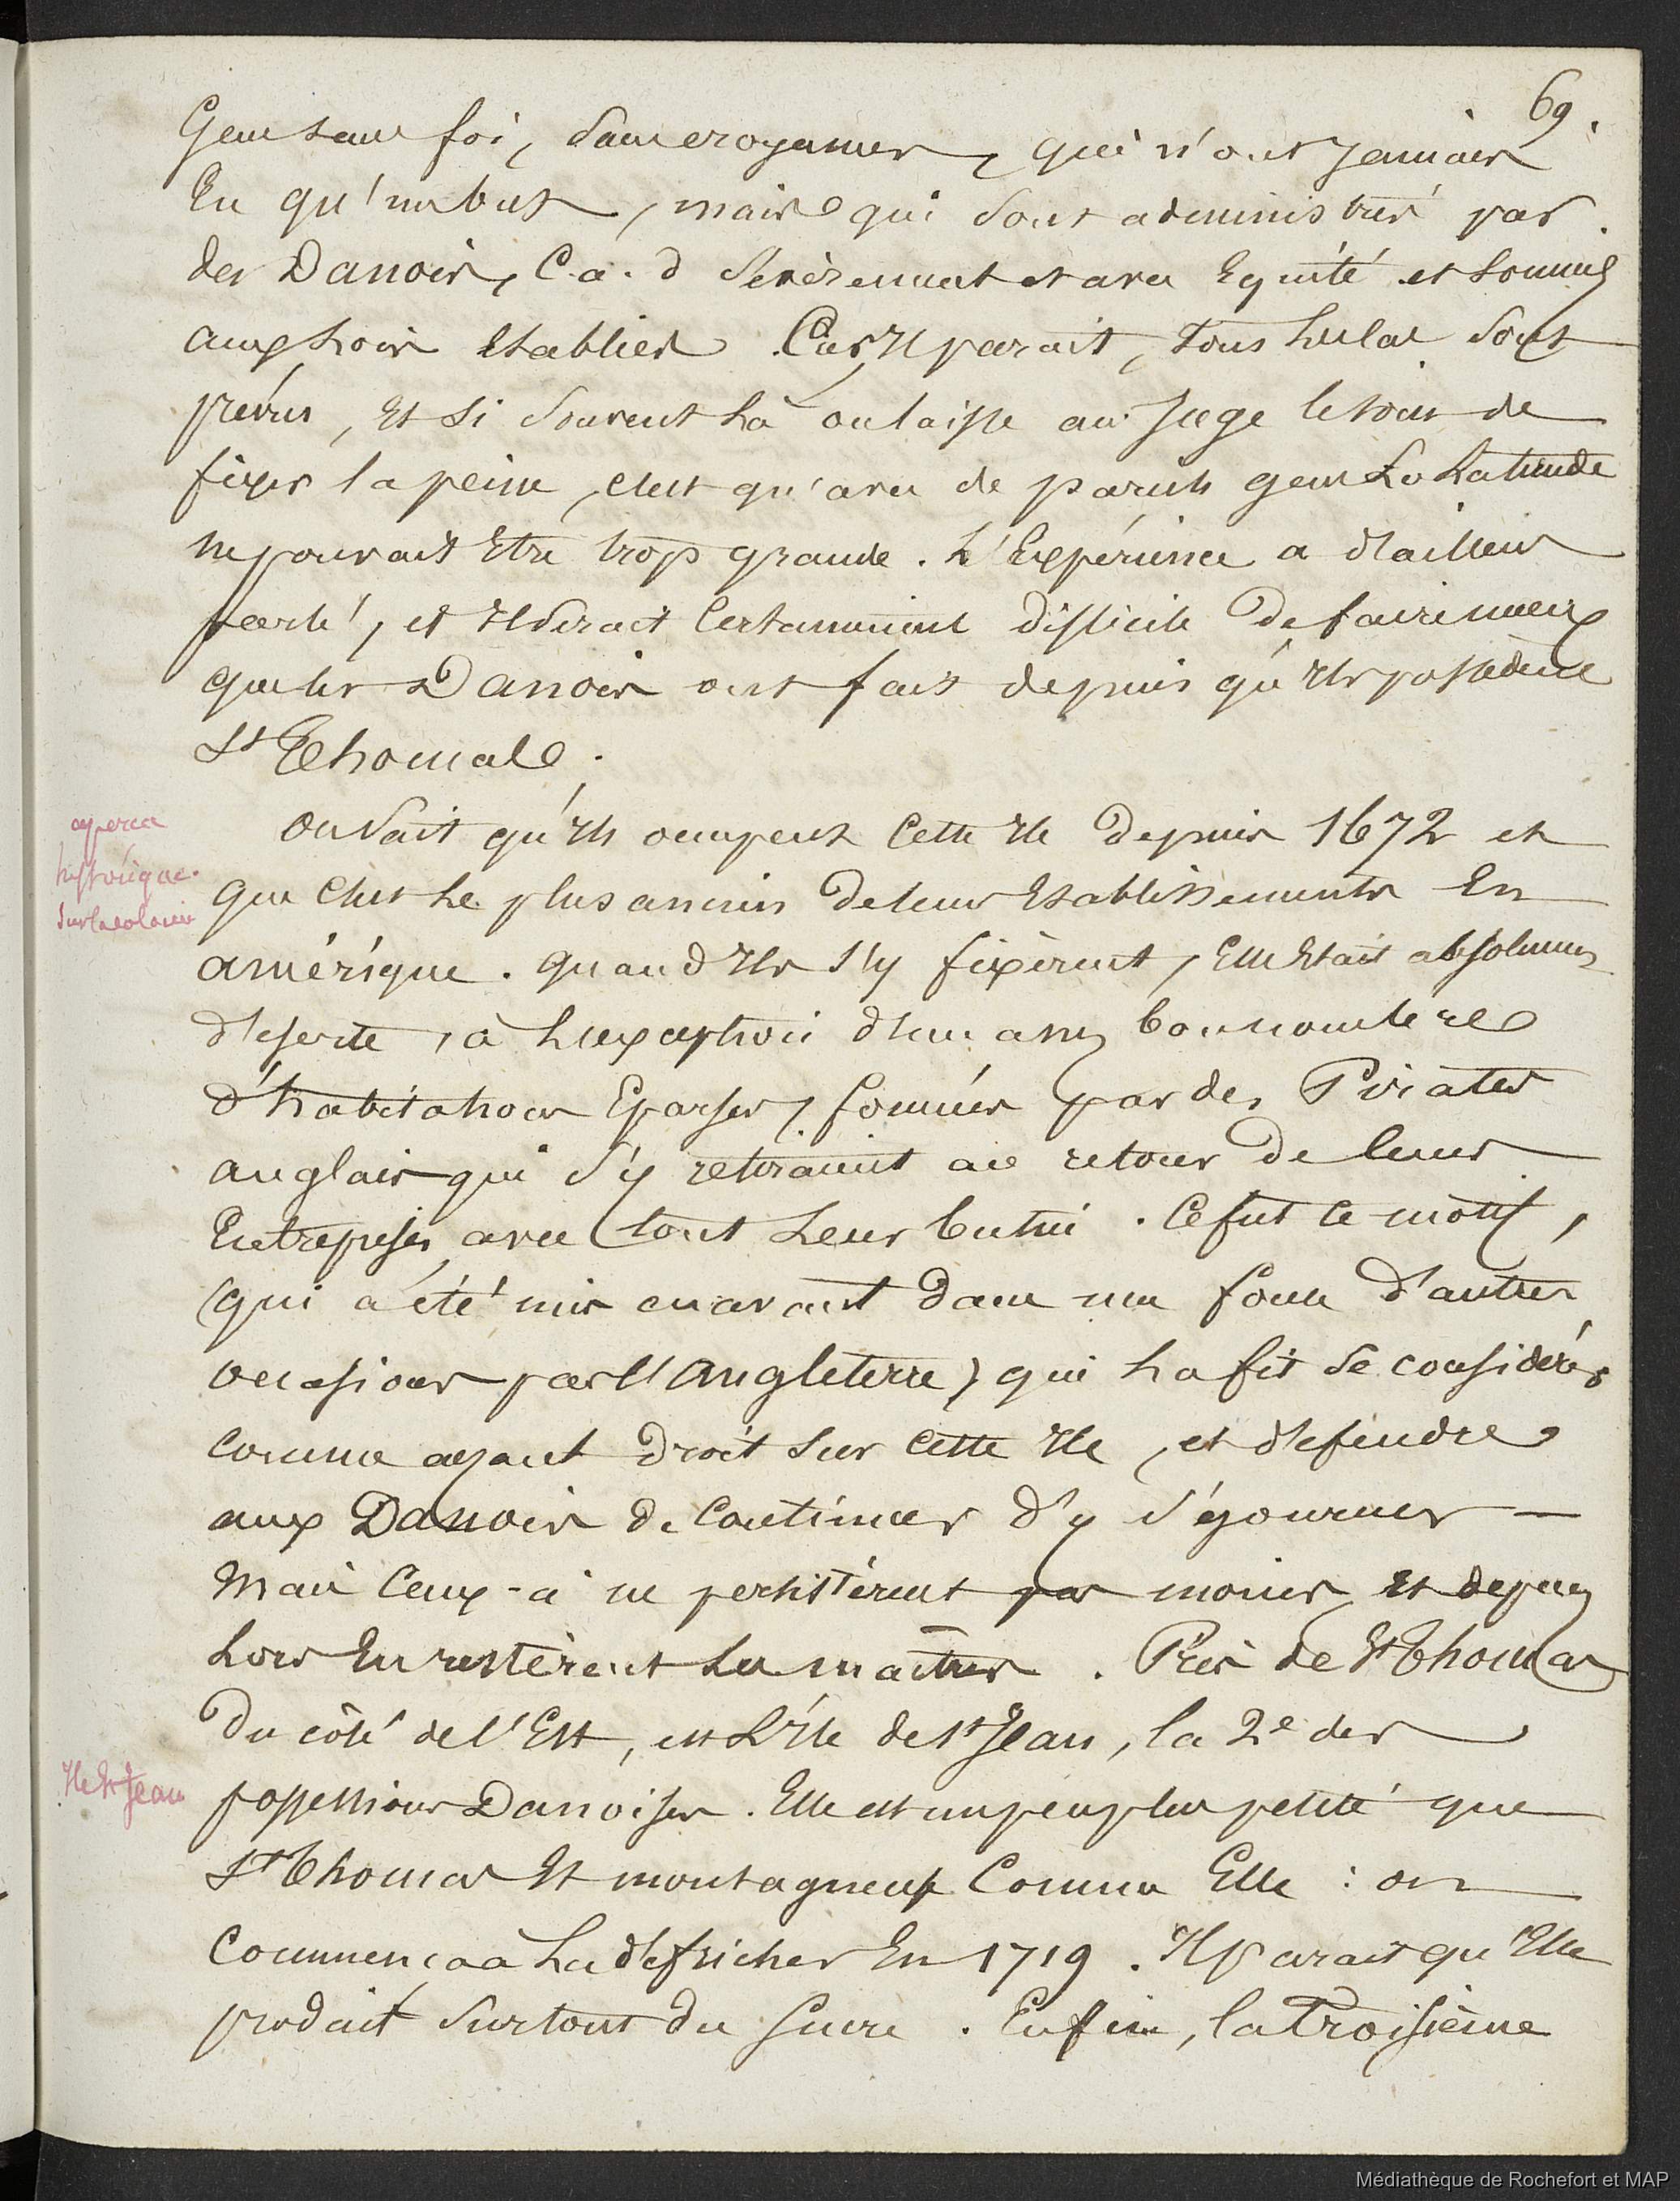 69.
Gens sans foi, sans croyances, qui n'ont jamais
Eu qu'un but, mais qui sont administrés par
des Danois, C. a. d Sévèrement et avec Equité et soumis
aux Lois Etablies. Car Il parait, tous les cas sont
prévus, Et si souvent Là on laisse au Juge le soin de
fixer la peine, c'est qu'avec de pareils gens La Latitude
ne pouvait Etre trop grande. L'Expérience a d'ailleurs
parlé, et Il serait Certainement difficile De faire mieux
que les Danois ont fait depuis qu'Ils possèdent
St Thomas.
aperçu
historique.
Sur la colonie
On Sait qu'Ils occupent Cette Ile Depuis 1672 et
que C'est Le plus ancien De leurs Etablissements En
amérique. quand Ils s'y fixèrent, Elle Etait absolument
déserte, à L'exception d'un assez bon nombre
d'habitations Eparses, formées par des Pirates
anglais qui s'y retiraient au retour De leurs
Entreprises avec tout Leur butin. Ce fut ce motif,
(qui a été mis en avant Dans une foule d'autres
occasions par l'Angleterre) qui La fit se considérer
comme ayant Droit sur Cette Ile, et défendre
aux Danois de Continuer d'y séjourner —
Mais Ceux-ci n'en persistèrent pas moins, et depuis
Lors En restèrent Les maîtres. Près de St Thomas
Du côté de l'Est, est L'Ile de St Jean, la 2e des
Ile St Jean
possessions Danoises. Elle est un peu plus petite que
St Thomas Et montagneux Comme Elle : on
Commença à La défricher En 1719. Il parait qu'Elle
produit surtout du Sucre. Enfin, la Troisième
Médiathèque de Rochefort et MAP